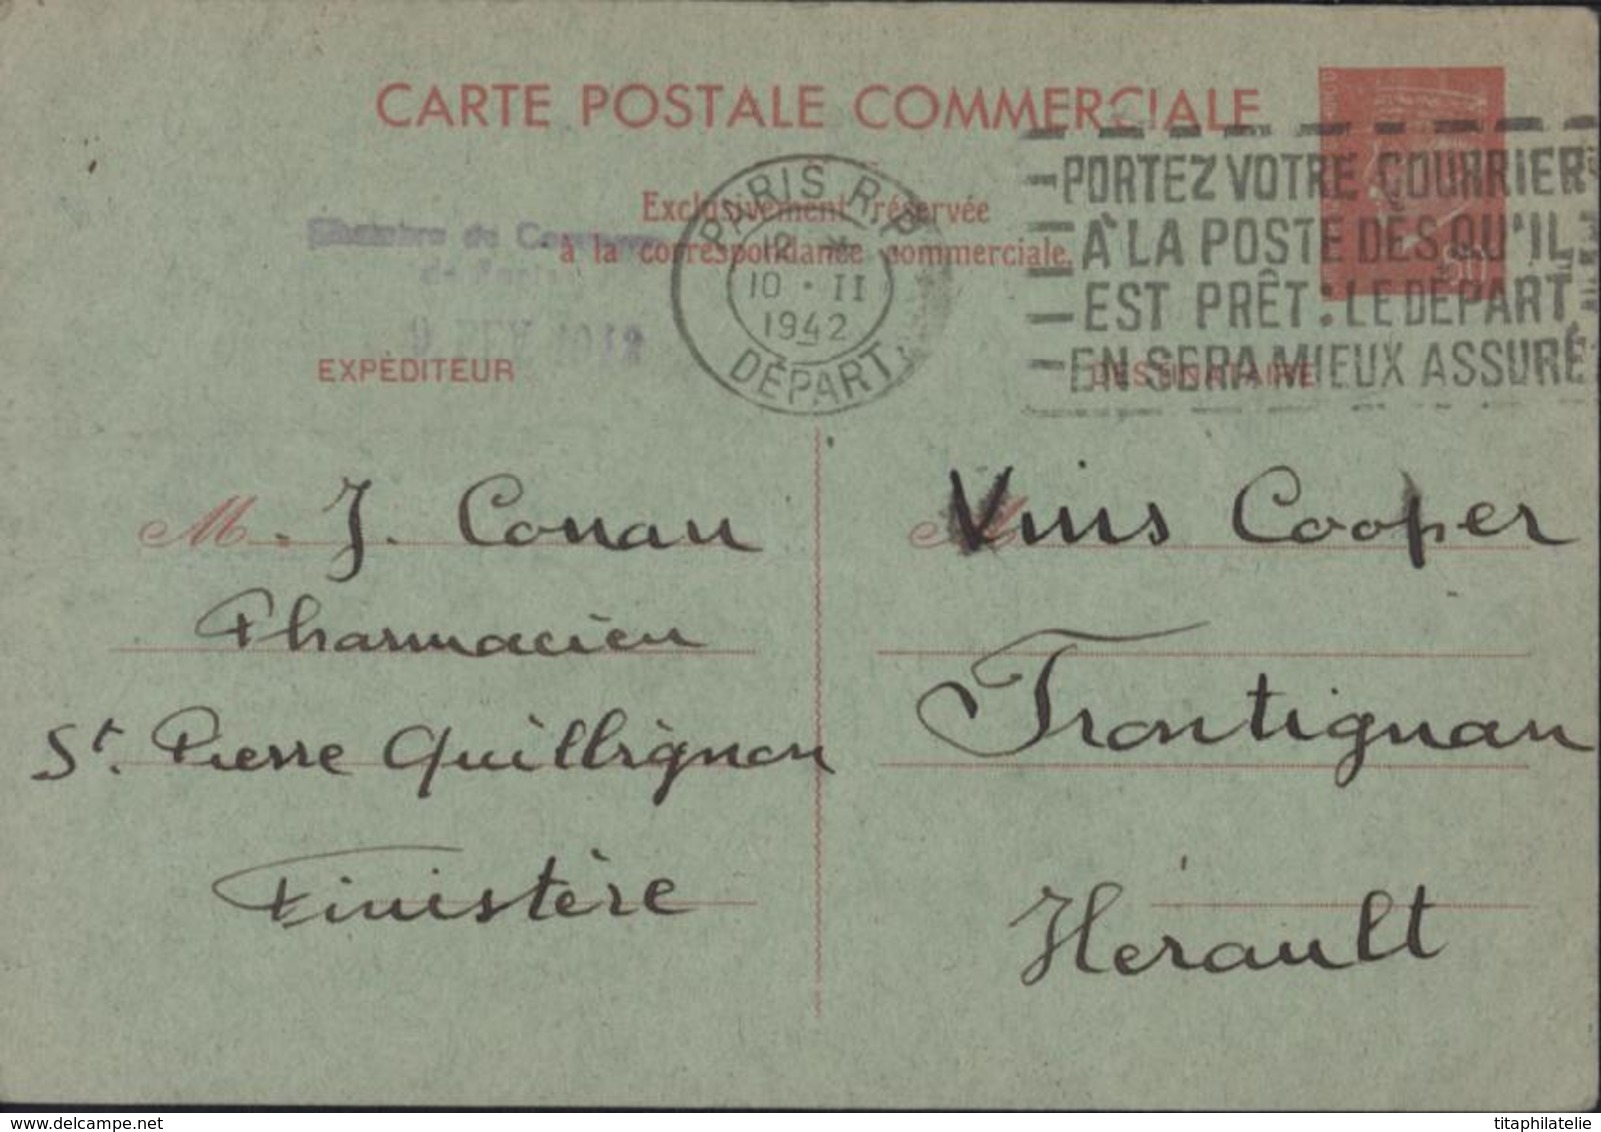 CARTE POSTALE COMMERCIALE
Exclusivement réservée
à la correspondance commerciale.
Chambre de Commerce
de Paris
9 FEV 1942
PARIS R.P
12 *
10 · II
1942
DÉPART
PORTEZ VOTRE COURRIER
À LA POSTE DÈS QU'IL
EST PRÊT : LE DÉPART
EN SERA MIEUX ASSURÉ
EXPÉDITEUR
DESTINATAIRE
M. J. Conan
Pharmacien
St. Pierre Quilbignon
Finistère
Vins Cooper
Frontignan
Hérault
titaphilatelie